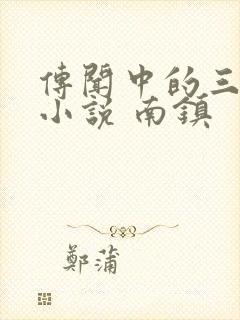 傳聞中的三
小說 南鎮
鄭蒲